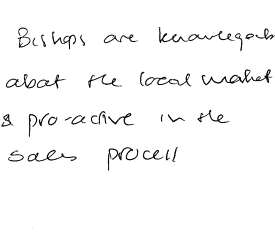 Bishops are knowledgeable
about the local market
& pro-active in the
sales process